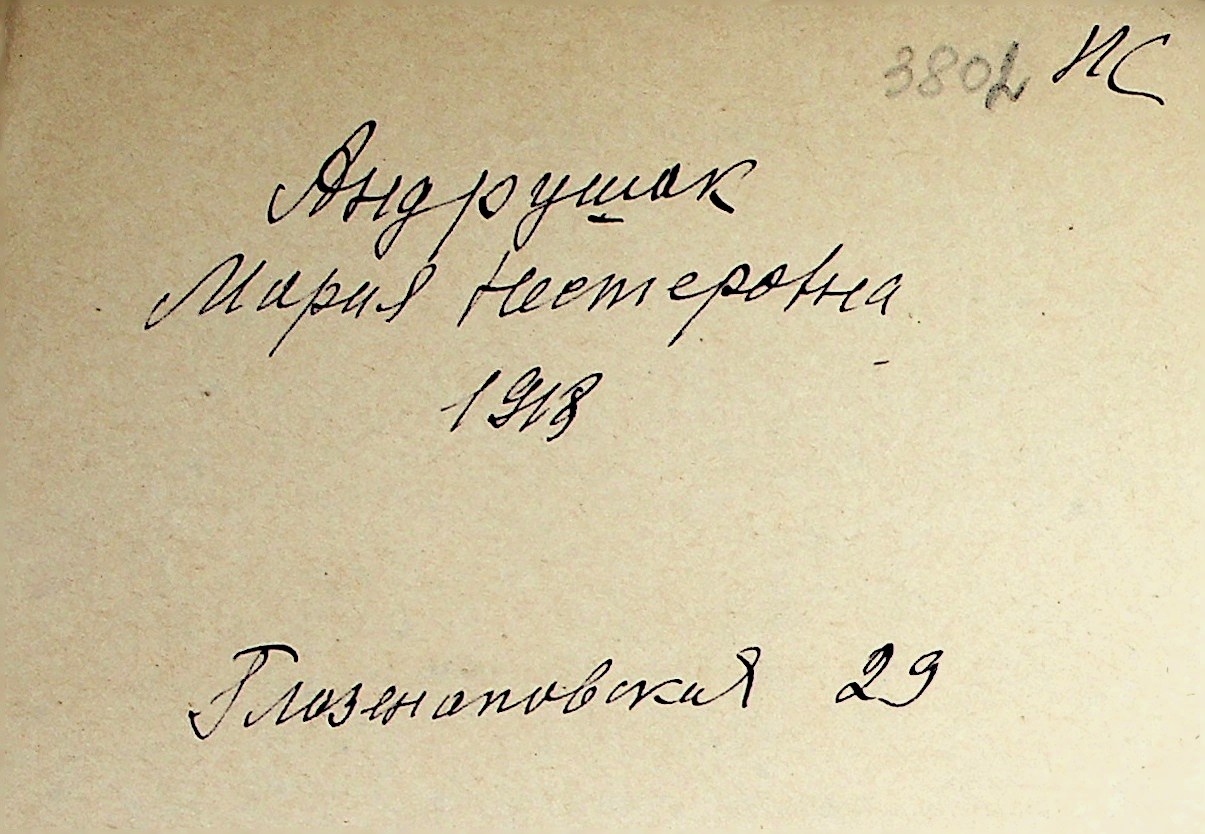 3802 ИС
Андрушак
Мария Нестеровна
1918
Глазенаповская 29